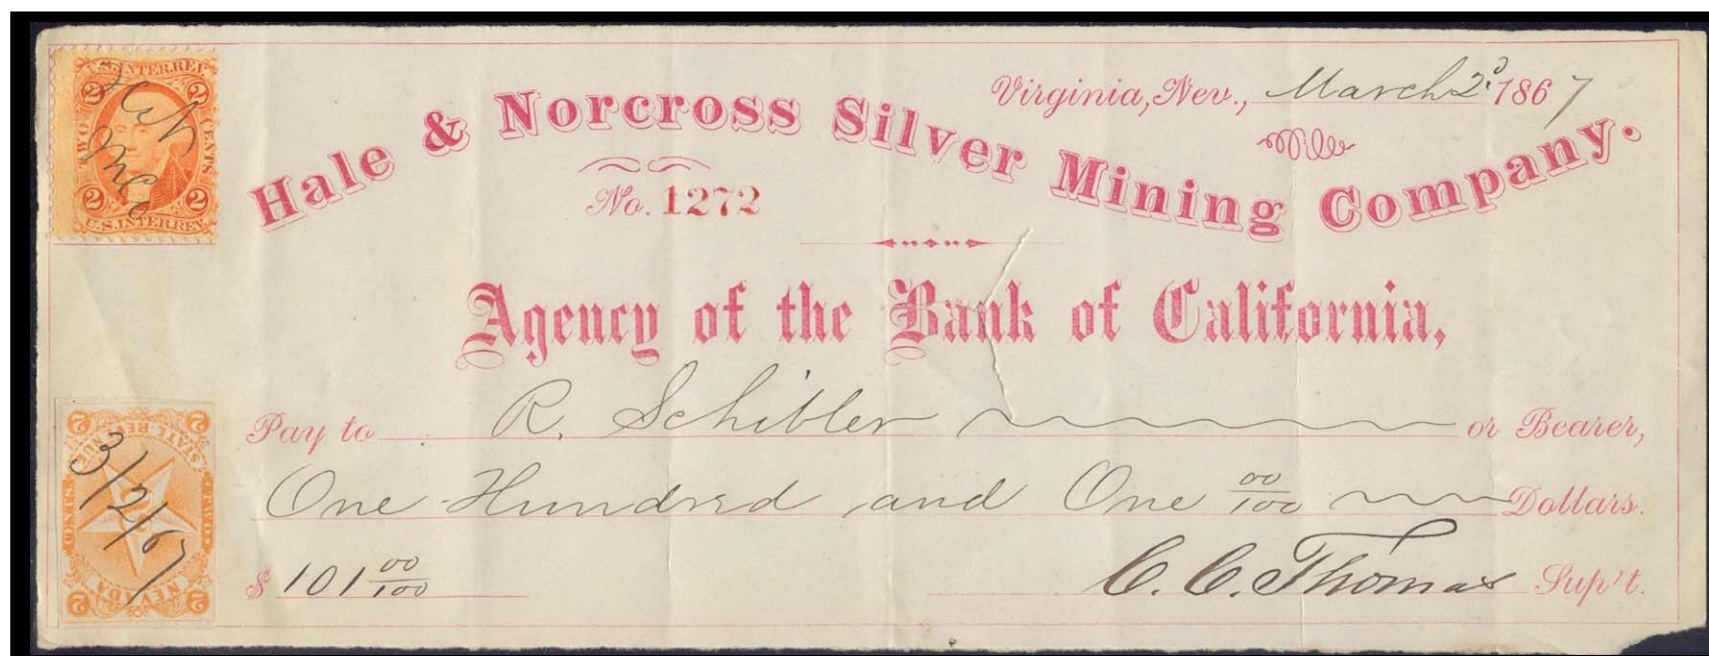 U.S. INTER. REV.
2 2
TWO CENTS
2 2
U.S. INTER. REV.
H & N
SMCo
Virginia, Nev., March 2d 1867
Hale & Norcross Silver Mining Company.
No. 1272
Agency of the Bank of California,
Pay to R. Schibler or Bearer,
One Hundred and One 00/100 Dollars.
$ 101 00/100
C. C. Thomas Sup't.
2 2
STATE REVENUE
TWO CENTS
3/2/67
NEVADA
2 2